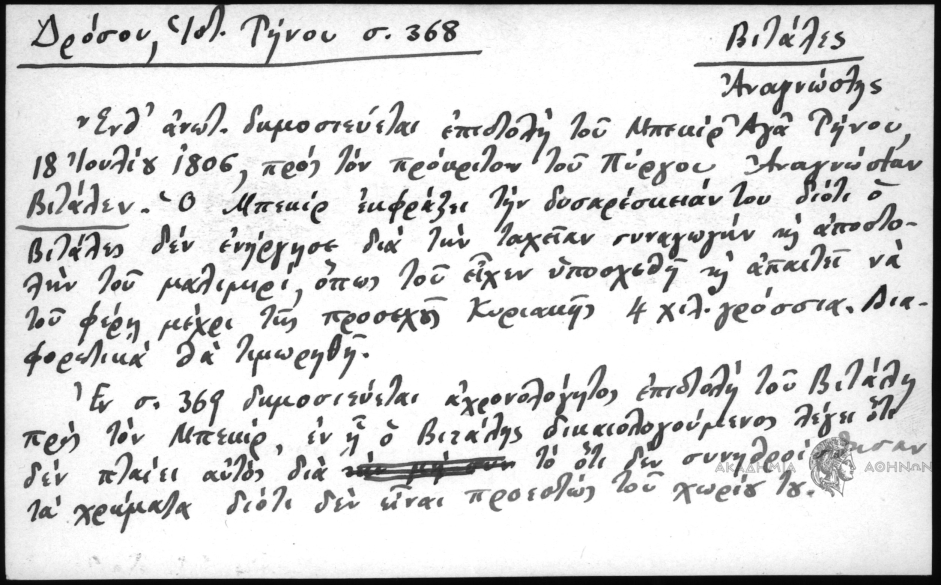 Δρόσου, Ἱστ. Τήνου σ. 368
Βιτάλης
Ἀναγνώστης
Ἔνθ' ἀνωτ. δημοσιεύεται ἐπιστολὴ τοῦ Μπεκὶρ Ἀγᾶ Τήνου,
18 Ἰουλίου 1806, πρὸς τὸν πρόκριτον τοῦ Πύργου Ἀναγνώσταν
Βιτάλην. Ὁ Μπεκὶρ ἐκφράζει τὴν δυσαρέσκειάν του διότι ὁ
Βιτάλης δὲν ἐνήργησε διὰ τὴν ταχεῖαν συναγωγὴν κὴ ἀποστο-
λὴν τοῦ μαλιμιρί, ὅπως τοῦ εἶχεν ὑποσχεθῆ κὴ ἀπαιτεῖ νὰ
τοῦ φέρῃ μέχρι τῆς προσεχοῦς Κυριακῆς 4 χιλ. γρόσσια. Δια-
φορετικὰ θὰ τιμωρηθῆ.
Ἐν σ. 369 δημοσιεύεται ἀχρονολόγητος ἐπιστολὴ τοῦ Βιτάλη
πρὸς τὸν Μπεκίρ, ἐν ᾗ ὁ Βιτάλης δικαιολογούμενος λέγει ὅτι
δὲν πταίει αὐτὸς διὰ τὸ ὅτι δὲν συνηθροίσθησαν
τὰ χρήματα διότι δὲν εἶναι προεστὼς τοῦ χωρίου του.
ΑΚΑΔΗΜΙΑ ΑΘΗΝΩΝ